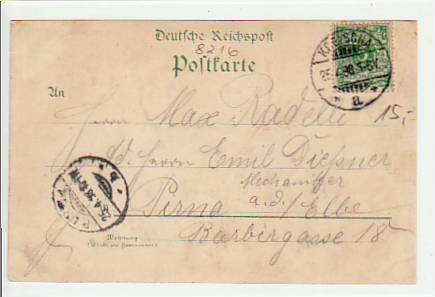 Deutsche Reichspost
8216
Postkarte
An
Herrn Max Radelli
Ad. Herrn Emil Dießner
Mechaniker
Pirna a.d./Elbe
Barbiergasse 18
15,-
a
Wohnung
(Straße und Hausnummer)